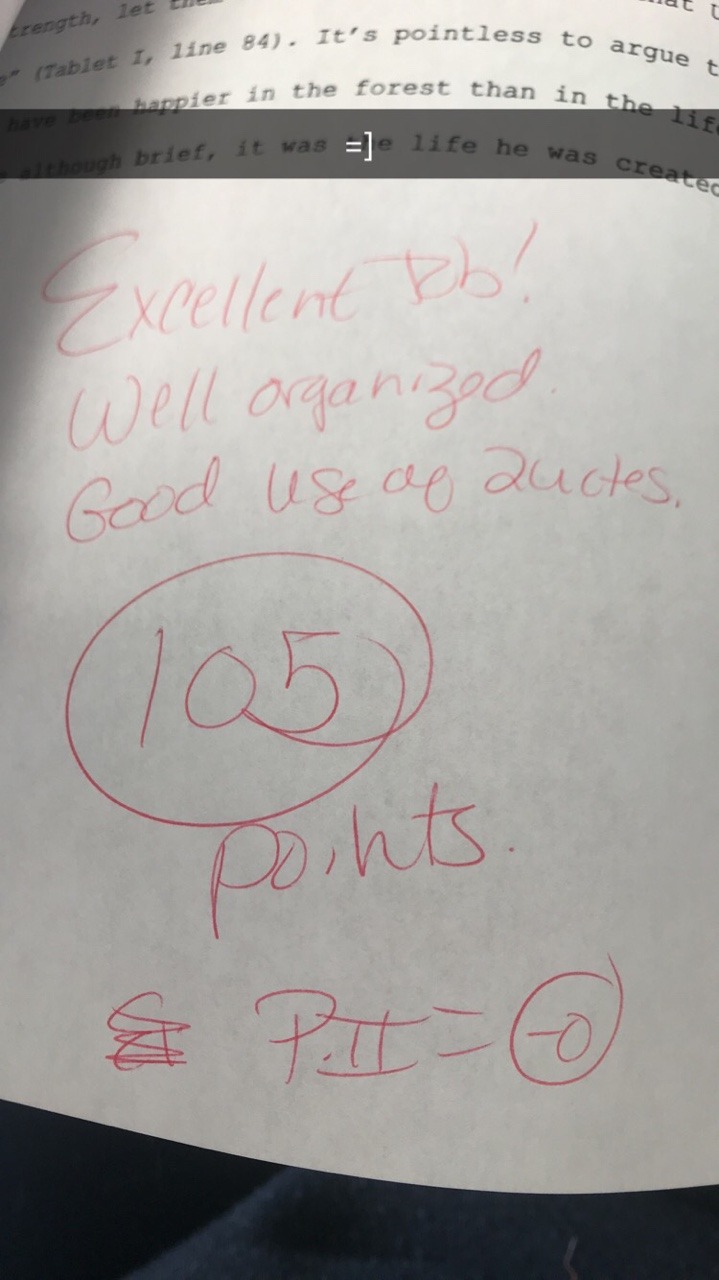 trength, let
" (Tablet I, line 84). It's pointless to argue t
have been happier in the forest than in the life
although brief, it was the life he was created
=]
Excellent Job!
Well organized.
Good use of Quotes.
105
points.
P.II = -0